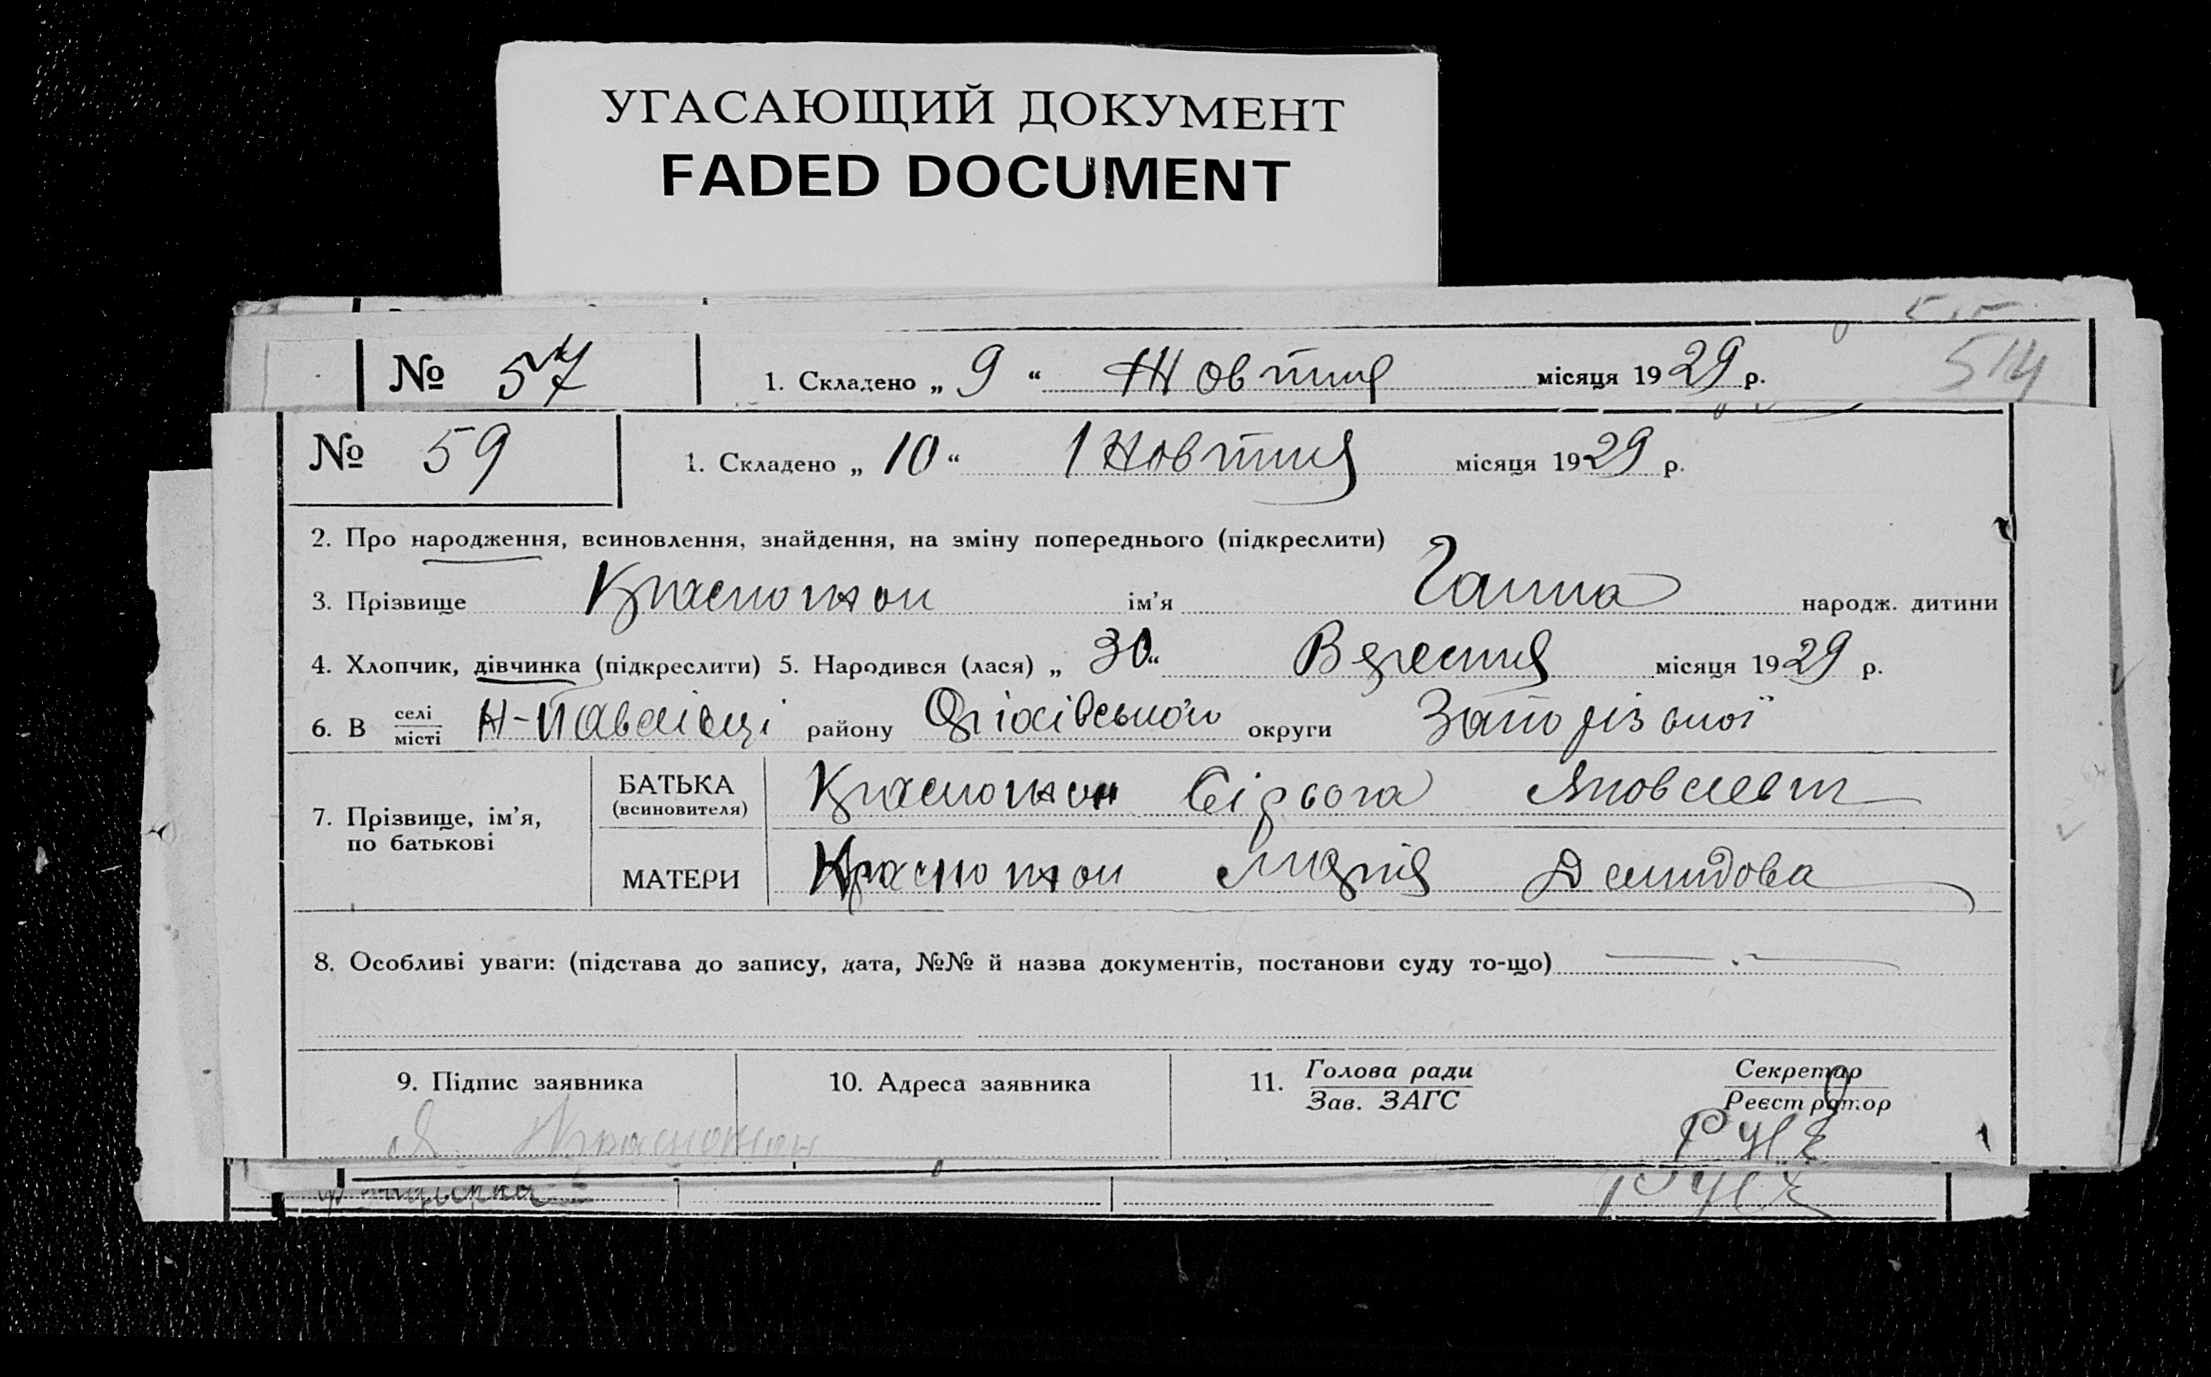 УГАСАЮЩИЙ ДОКУМЕНТ
FADED DOCUMENT
514
№ 57 1. Складено „ 9 “ Жовтня місяця 1929 р.
№ 59 1. Складено „ 10 “ Жовтня місяця 1929 р.
2. Про народження, всиновлення, знайдення, на зміну попереднього (підкреслити)
3. Прізвище Красножон ім'я Ганна народж. дитини
4. Хлопчик, дівчинка (підкреслити) 5. Народився (лася) „ 30 “ Вересня місяця 1929 р.
6. В селі місті Н-Павлівці району округи Запорізької
7. Прізвище, ім'я, по батькові
БАТЬКА (всиновителя) Красножон Сірьога Яковлевич
МАТЕРИ Красножон Марія Демидова
8. Особливі уваги: (підстава до запису, дата, №№ й назва документів, постанови суду то-що)
9. Підпис заявника 10. Адреса заявника 11. Голова ради Зав. ЗАГС Секретар Реєстратор
Красножон